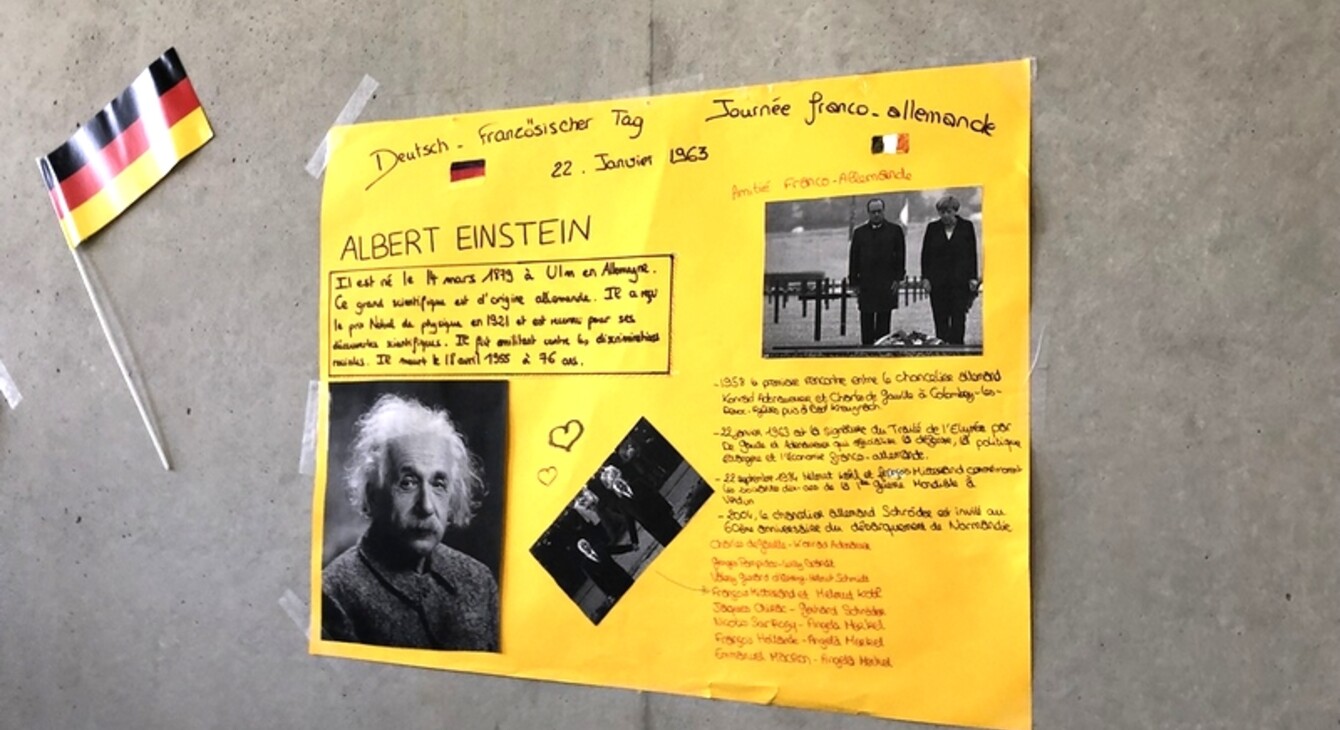 Deutsch - Französischer Tag
22. Janvier 1963
Journée franco-allemande
ALBERT EINSTEIN
Il est né le 14 mars 1879 à Ulm en Allemagne.
Ce grand scientifique est d'origine allemande. Il a reçu
le prix Nobel de physique en 1921 et est reconnu pour ses
découvertes scientifiques. Il fut militant contre les discriminations
raciales. Il meurt le 18 avril 1955 à 76 ans.
Amitié Franco-Allemande
-1958 la première rencontre entre le chancelier allemand
Konrad Adenauer et Charles de Gaulle à Colombey-les-
Deux-Églises puis à Bad Kreuznach
-22 janvier 1963 est la signature du Traité de l'Elysée par
De Gaulle et Adenauer qui la défense, la politique
étrangère et l'économie franco-allemande.
- 22 septembre 1984 Helmut Kohl et François Mitterrand commémorent
les soixante dix ans de la 1ère guerre Mondiale à
Verdun
- 2004, le chancelier allemand Schröder est invité au
60ème anniversaire du débarquement de Normandie
Charles de Gaulle - Konrad Adenauer
Georges Pompidou - Willy Brandt
Valéry Giscard d'Estaing - Helmut Schmidt
François Mitterrand et Helmut Kohl
Jacques Chirac - Gerhard Schröder
Nicolas Sarkozy - Angela Merkel
François Hollande - Angela Merkel
Emmanuel Macron - Angela Merkel